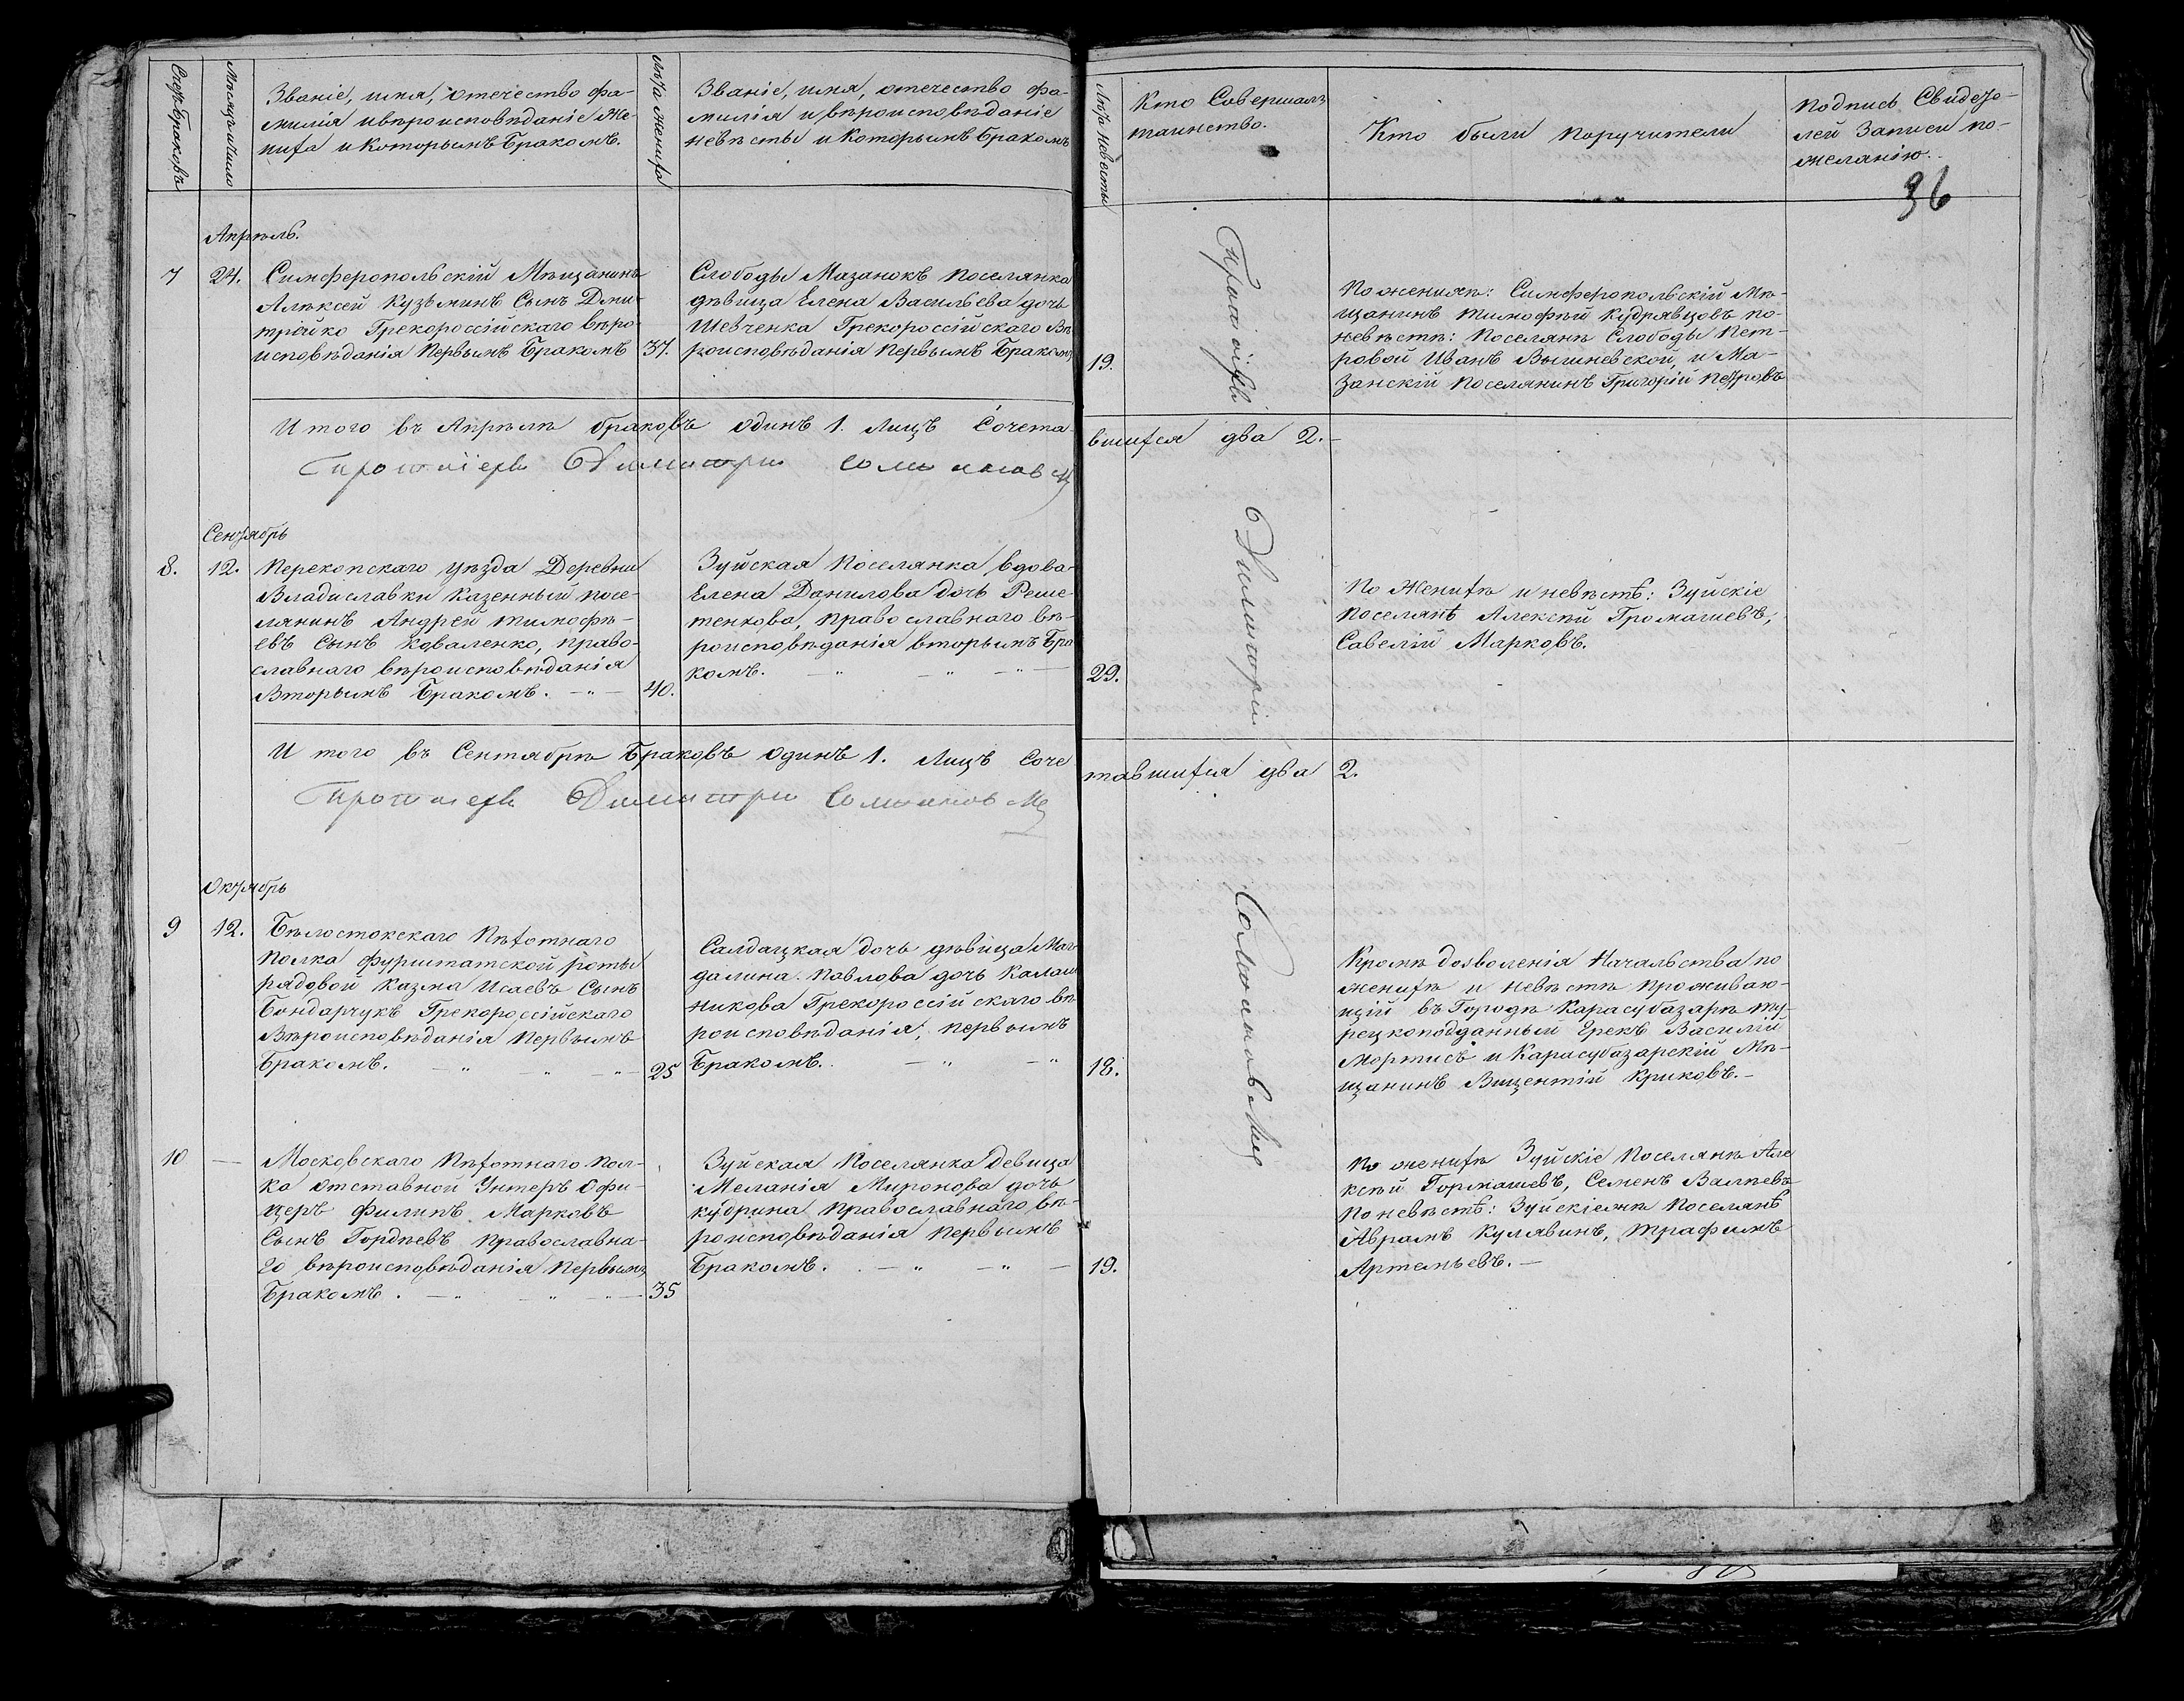 Счетъ Браковъ
Мѣсяцъ и число
Званіе, имя, отечество фа-
милія и вѣроисповѣданіе Же-
ниха и Которымъ Бракомъ.
Лѣта Жениха
Званіе, имя, отечество фа-
милія и вѣроисповѣданіе
невѣсты и Которымъ Бракомъ
Лѣта Невѣсты
Кто Совершалъ
таинство.
Кто были поручители
подпись Свидѣте-
лей Записи по-
желанію.
36
Апрѣль.
7
24.
Симферопольскій Мѣщанинъ
Алѣксей Кузьминъ Сынъ Дми-
трейко Грекороссійскаго вѣро-
исповѣданія Первымъ Бракомъ
37.
Слободы Мазанокъ поселянка
дѣвица Елена Васильева дочь
Шевченка Грекороссійскаго Вѣ
роисповѣданія Первымъ Бракомъ
19.
По женихѣ: Симферопольскій Мѣ-
щанинъ Тимофѣй Кудрявцовъ по-
невѣстѣ: поселянѣ Слободы Пет-
ровой Иванъ Вышневской, и Ма-
занскій поселянинъ Григорій Петровъ
И того въ Апрѣлѣ браковъ одинъ 1. Лицъ Сочета-
вшихся два 2.-
Протоіерей Димитри
Сентябрь
8.
12.
Перекопскаго уѣзда Деревни
Владиславки Казенный посе-
лянинъ Андрей Тимофѣ-
евъ Сынъ Коваленко, право-
славнаго вѣроисповѣданія
Вторымъ Бракомъ.
40.
Зуйская Поселянка вдова
Елена Данилова дочь Реше-
тенкова, православнаго вѣ-
роисповѣданія вторымъ Бра
комъ.
29.
По Женихѣ и невѣстѣ: Зуйскіе
поселянѣ Алексѣй Громашевъ,
Савелій Марковъ.
И того въ Сентябрѣ Браковъ одинъ 1. Лицъ Соче
тавшихся два 2.
Протоіерей Димитри
Октябрь
9
12.
Бѣлостокскаго Пѣхотнаго
полка фурштатской роты
рядовой Казма Исаевъ Сынъ
Бондарчукъ Грекороссійскаго
Вѣроисповѣданія Первымъ
Бракомъ.
25
Салдацкая дочь дѣвица Маг
далина Павлова дочь Калаш
никова Грекороссійскаго вѣ
роисповѣданія, первымъ
Бракомъ.
18.
Кромѣ дозволенія Начальства по
женихѣ и невѣстѣ проживаю-
щій въ Городѣ Карасубазарѣ ту-
рецкоподданный Грекъ Василій
Мортисъ и Карасубазарскій Мѣ-
щанинъ Вицентій Криковъ.-
10
—
Московскаго Пѣхотнаго Пол-
ка отставной Унтеръ Офи-
церъ Филипъ Марковъ
Сынъ Гордѣевъ Православна-
го вѣроисповѣданія Первымъ
Бракомъ.
35
Зуйская Поселянка Девица
Меланія Миронова дочь
Кудрина Православнаго вѣ
роисповѣданія Первымъ
Бракомъ.
19.
По женихѣ Зуйскіе Поселянѣ Але
ксѣй Гормашевъ, Семенъ Валѣевъ
По невѣстѣ: Зуйскіе Поселянѣ
Абрамъ Кулявинъ, Трафимъ
Артемьевъ.-
Протоіерей Димитрій